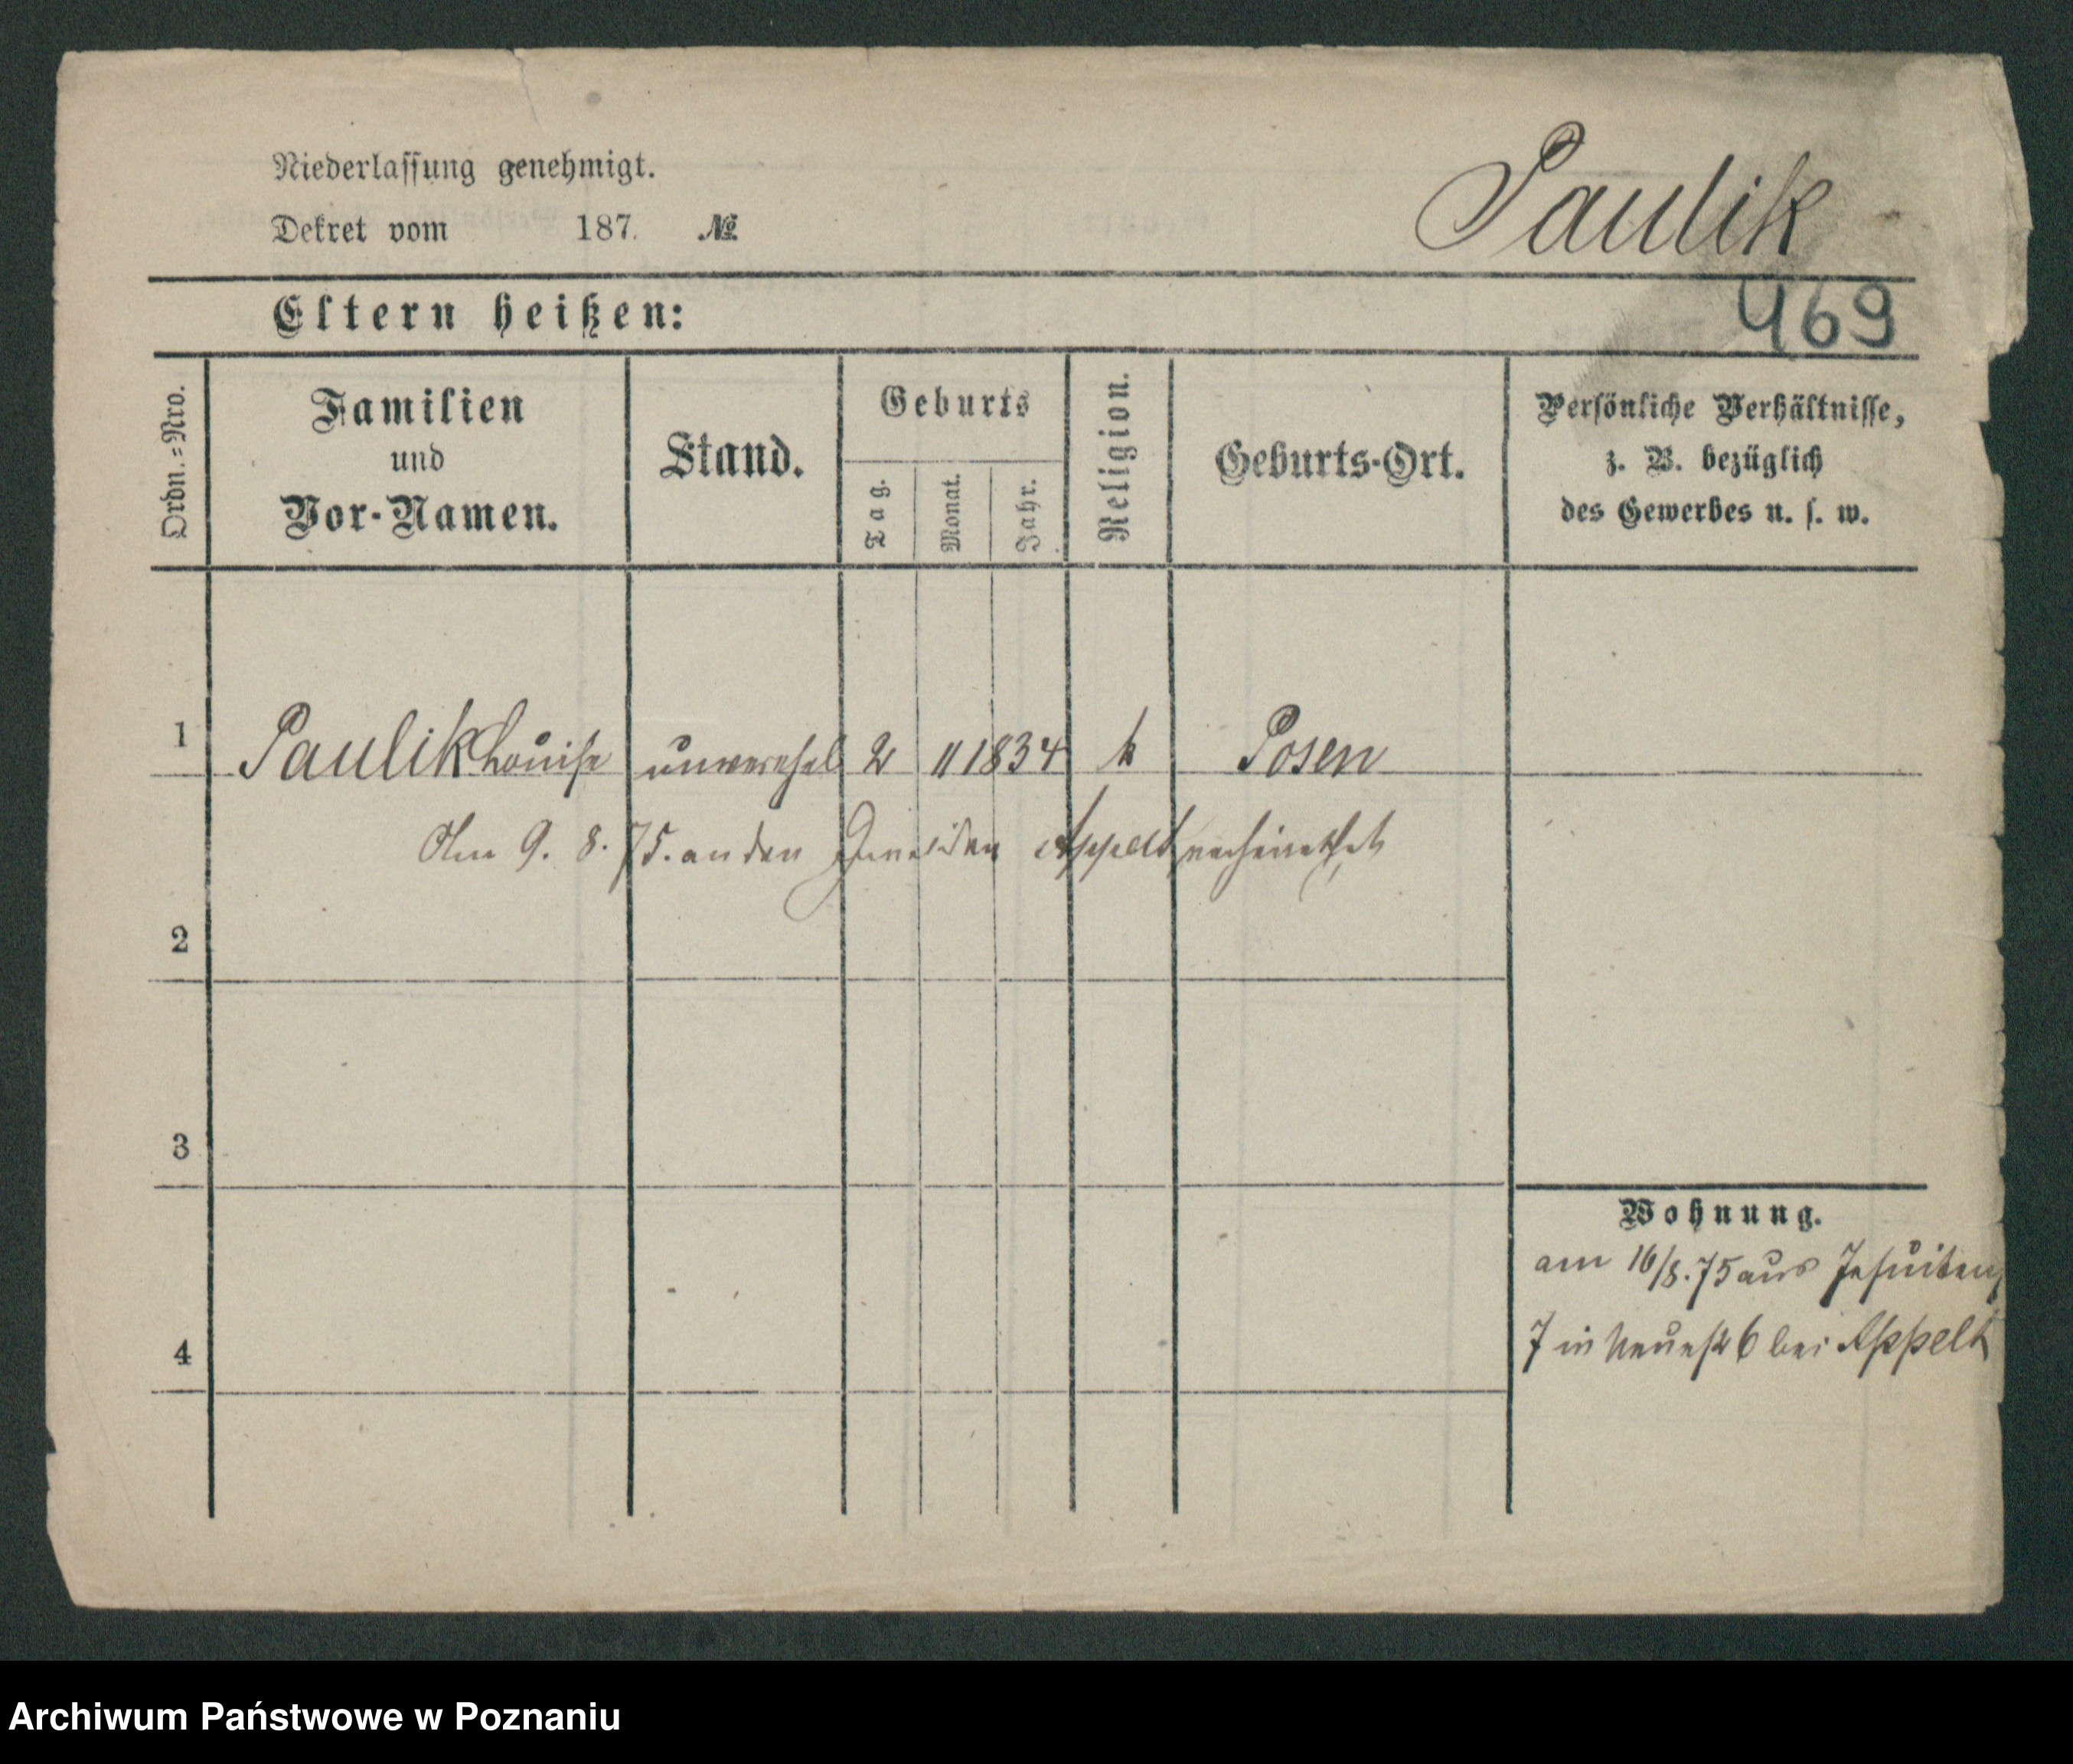 Niederlassung genehmigt.
Dekret vom 187. №
Paulik
Eltern heißen:
469
Ordn.=Nro.
Familien
und
Vor-Namen.
Stand.
Geburts
Tag.
Monat.
Jahr.
Religion.
Geburts-Ort.
Persönliche Verhältnisse,
z. B. bezüglich
des Gewerbes u. s. w.
1 Paulik Louise unverehel 2 11 1834 k Posen
Am 9. 8. 75. an den Appelt verheirathet
2
3
Wohnung.
am 16/8. 75 aus Jesuiten
7 in Neuestr 6 bei Appelt
4
Archiwum Państwowe w Poznaniu